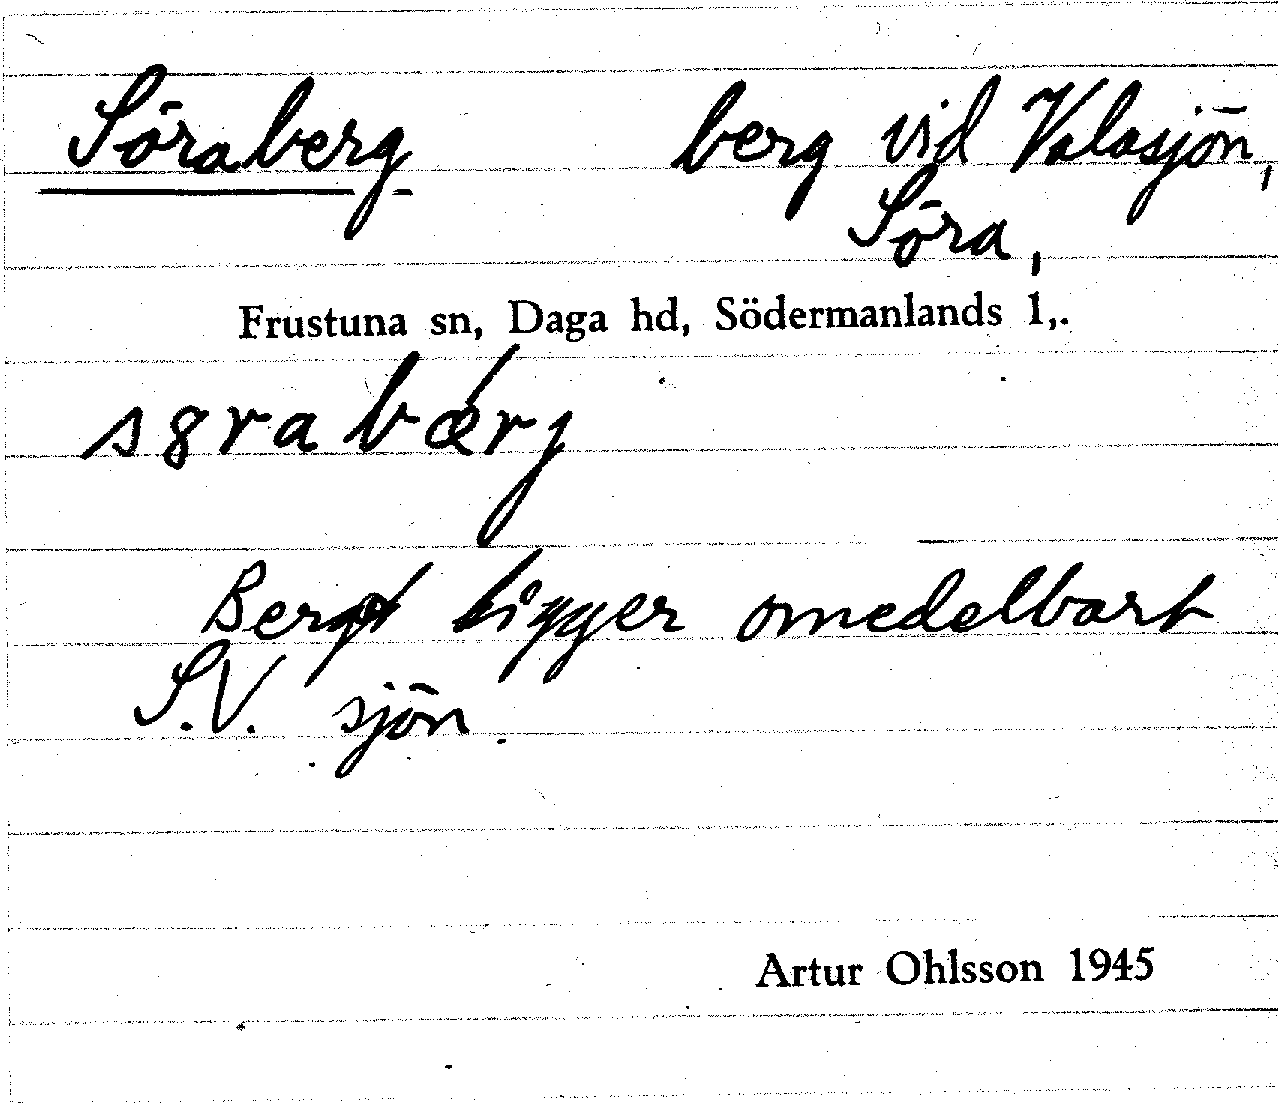 Söraberg berg vid Valasjön,
Söra,
Frustuna sn, Daga hd, Södermanlands l,.
s8rabærj
Bergt ligger omedelbart
S.V. sjön.
Artur Ohlsson 1945